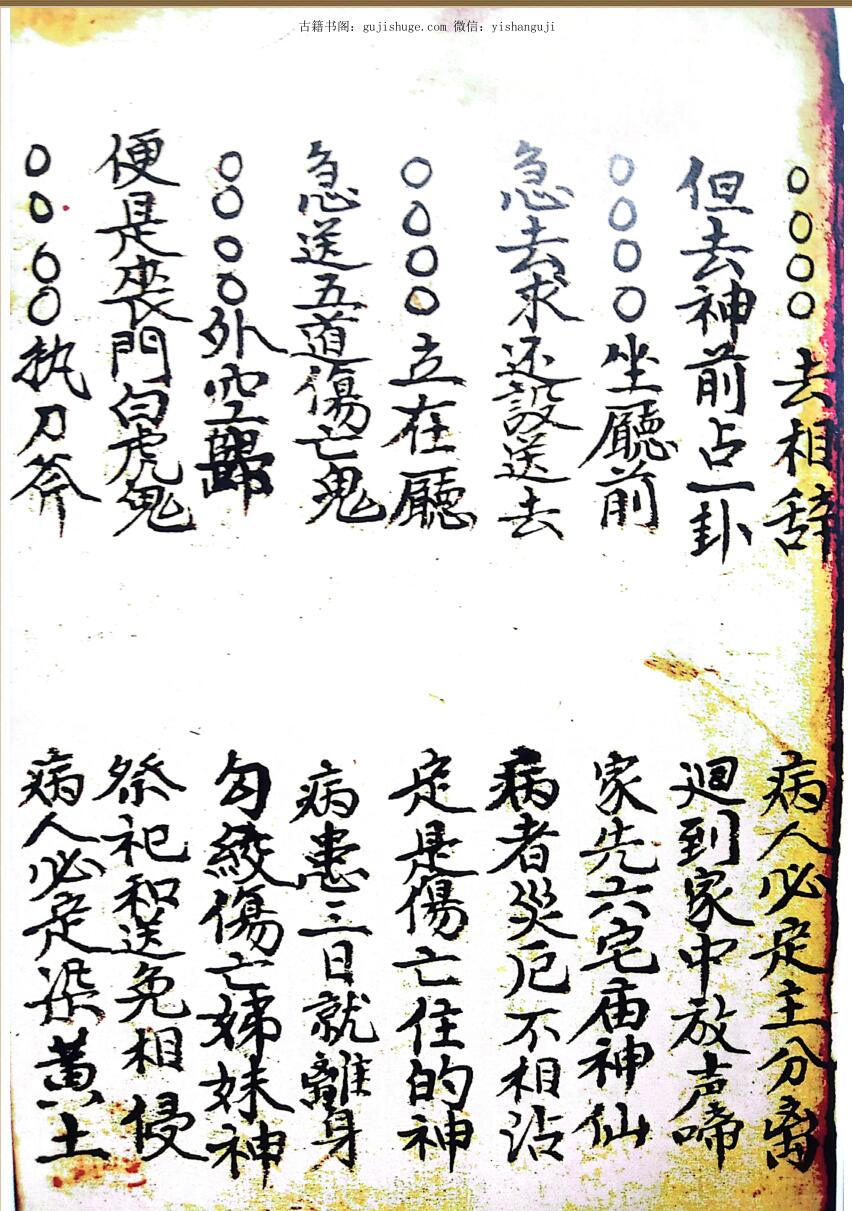 古籍书阁：gujishuge.com 微信：yishanguji
○○○○去相辞 病人必定主分离
但去神前占一卦 迴到家中放声啼
○○○○坐廳前 家先六宅庙神仙
急去求还設送去 病者災厄不相沾
○○○○立在廳 定是傷亡住的神
急送五道傷亡鬼 病患三日就離身
○○○○外空歸 勾絞傷亡姊妹神
便是丧門白虎鬼 祭祀和送免相侵
○○○○执刀斧 病人必定染黄土